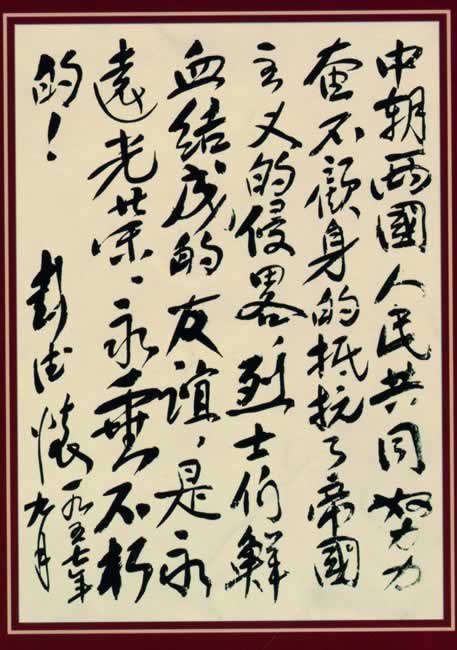 中朝兩國人民共同努力
奋不顧身的抵抗了帝國
主义的侵畧，烈士们鲜
血结成的友谊，是永
遠光荣、永垂不朽
的！
彭德懷
一九五七年
九月